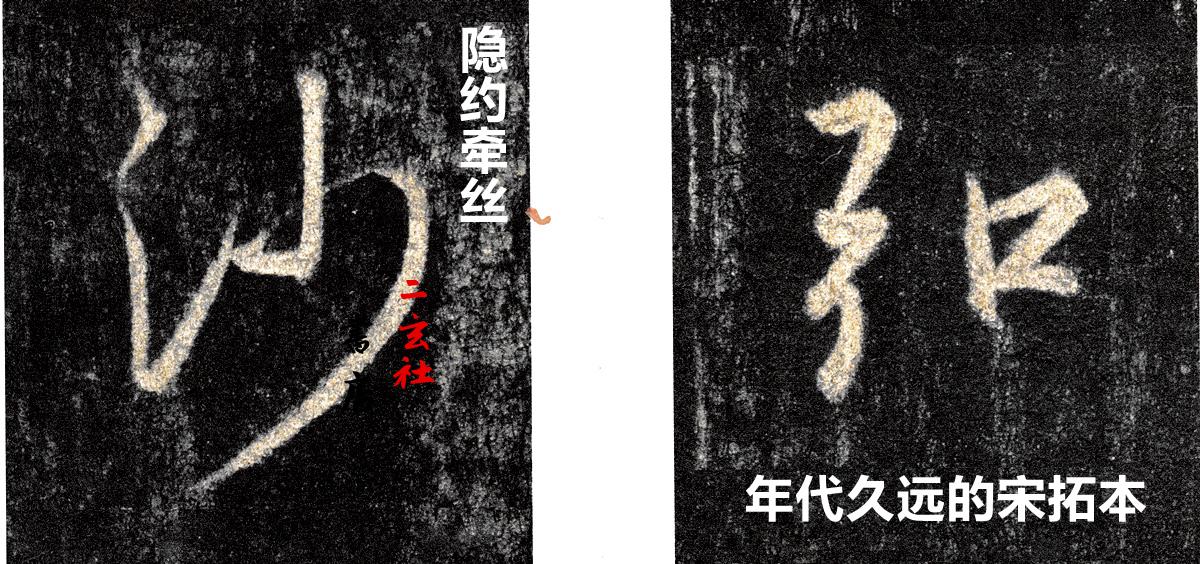 沙
隐约牵丝
二玄社
年代久远的宋拓本